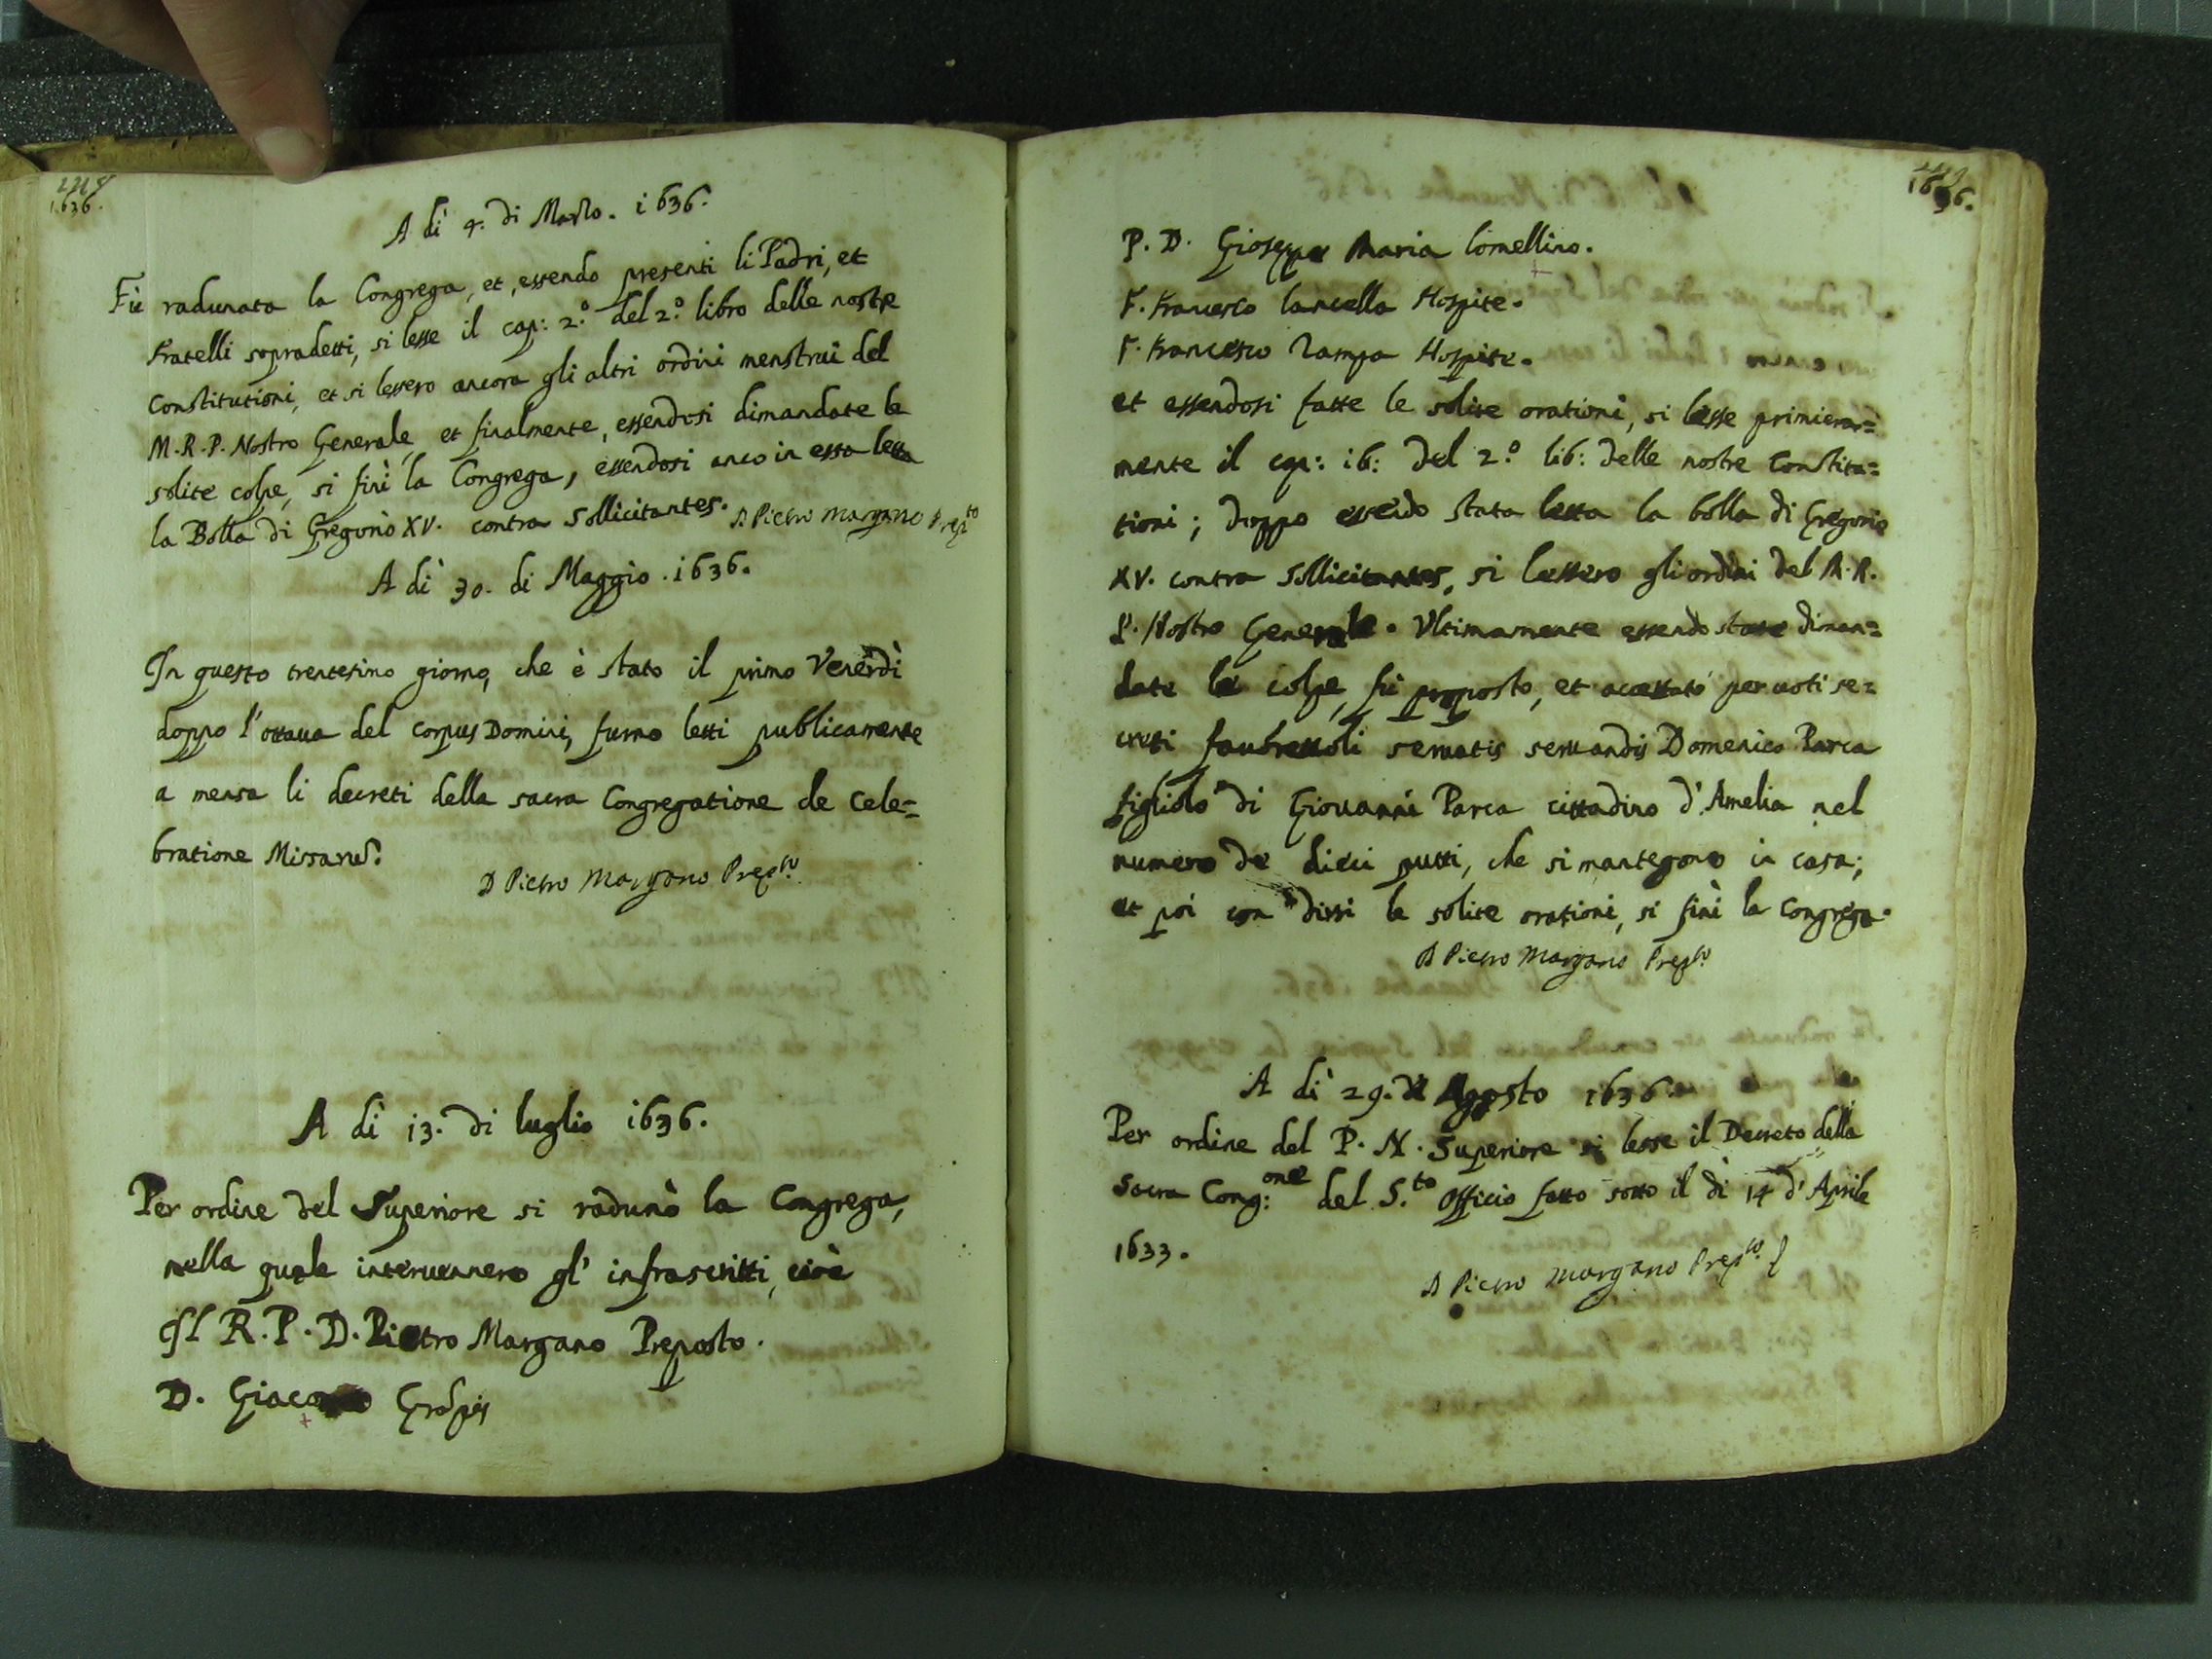 1636.
A dì 4. di Marzo. i636.
Fù radunata la Congrega, et, essendo presenti li Padri, et
fratelli sopradetti, si lesse il cap: 2.º del 2.º libro delle nostre
Constitutioni, et si lessero ancora gli altri ordini menstrui del
M.R.P. Nostro Generale, et finalmente, essendosi dimandate le
solite colpe, si finì la Congrega, essendosi anco in essa letta
la Bolla di Gregorio XV. contra Sollicitantes. D Pietro Margano Prep.to
A dì 30. di Maggio. i636.
In questo trentesimo giorno, che è stato il primo Venerdì
doppo l'ottaua del Corpus Domini, furno letti publicamente
a mensa li decreti della sacra Congregatione de Cele=
bratione Missarum.
D Pietro Margano Prep.to
A dì i3. di luglio i636.
Per ordine del Superiore si radunò la Congrega,
nella quale interuennero gl' infrascritti, cioè
Il R.P.D. Pietro Margano Preposto.
D. Giacomo
1636.
P. D. Gioseppe Maria Lomellino.
F. Francesco Hospite.
F. Francesco Hospite.
et essendosi fatte le solite orationi, si lesse primiera=
mente il cap: i6: del 2.º lib: delle nostre Constitu=
tioni; doppo essendo stata letta la bolla di Gregorio
XV. contra Sollicitantes, si lessero gli ordini del M.R.
P. Nostro Generale. Vltimamente essendo state diman=
date le colpe, fù proposto, et accettato per uoti se=
creti fauoreuoli seruatis seruandis Domenico Parca
figliolo di Giouanni Parca cittadino d'Amelia nel
numero de dieci putti, che si mantegono in casa;
et poi con dirsi le solite orationi, si finì la Congrega.
D Pietro Margano Prep.to
A dì 29. di Agosto i636.
Per ordine del P. N. Superiore si lesse il Decreto della
Sacra Cong:one del S.to Officio fatto sotto il dì 14 d'Aprile
1633.
D Pietro Margano Prep.to